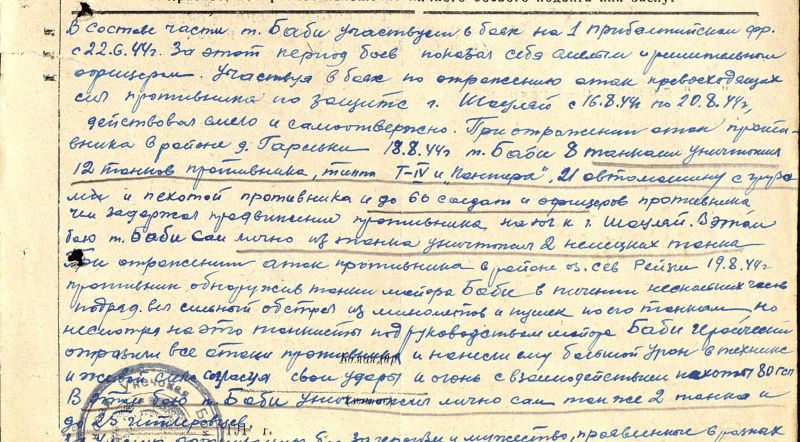 В составе части т. Баби участвует в боях на 1 прибалтийском фр.
с 22.6.44г. За этот период боев показал себя смелым и решительным
офицером. Участвуя в боях по отражению атак превосходящих
сил противника по защите г. Шауляй с 16.8.44г по 20.8.44г,
действовал смело и самоотвержно. При отражении атак против-
ника в районе д. 18.8.44г т. Баби 8 танками уничтожил
12 танков противника, типа Т-IV и „Пантера", 21 автомашину с груза
ми и пехотой противника и до 60 солдат и офицеров противника
чем задержал продвижение противника на юг к г. Шауляй. В этом
бою т. Баби сам лично из танка уничтожил 2 немецких танка
При отражении атак противника в районе оз. сев 19.8.44г
противник обнаружив танки майора Баби в течении нескольких часов
подряд вел сильный обстрел из минометов и пушек по его танкам, но
несмотря на это танкисты под руководством майора Баби геройчески
отразили все атаки противника и нанесли ему большой урон в технике
и живой силе свои удары и огонь с взаимодействием пехоты 80
В этом бою т. Баби уничтожил лично сам так же 2 танка и
до 25 гитлеровцев
бою за героизм и мужество, проявленные в разных